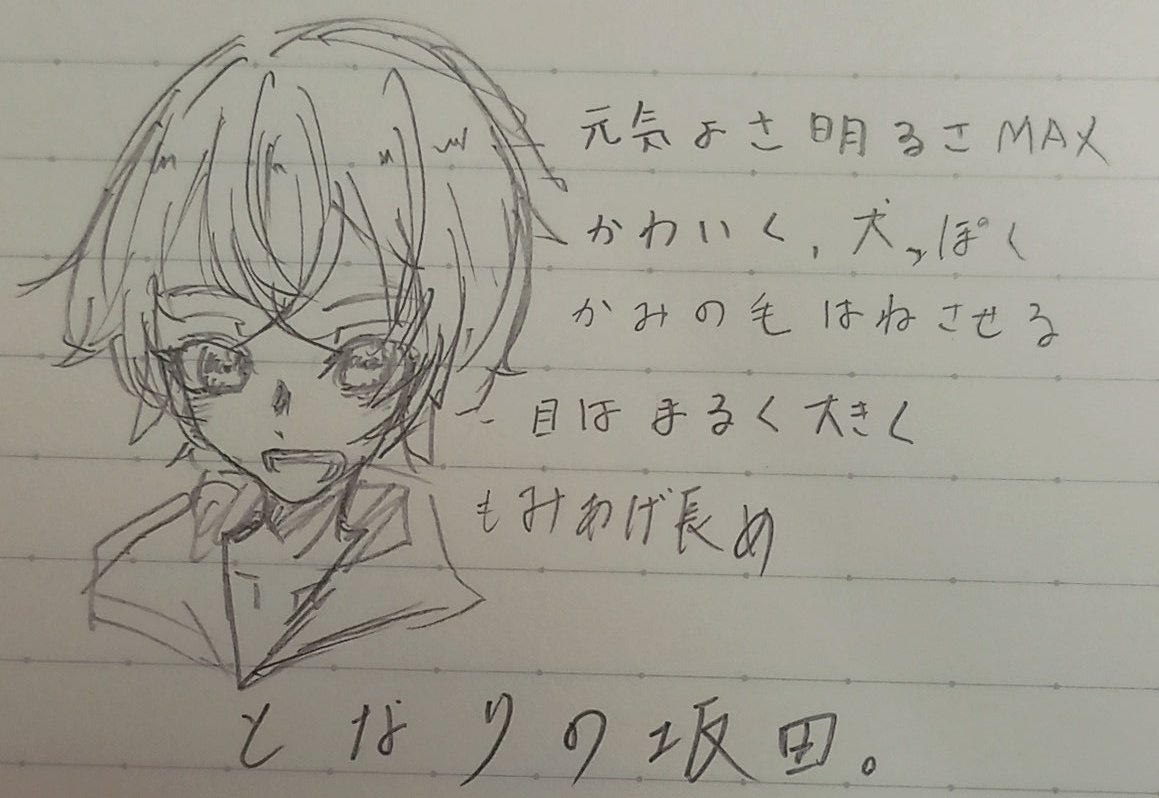 元気よさ明るさMAX
かわいく,犬っぽく
かみの毛はねさせる
目はまるく大きく
もみあげ長め
となりの坂田。